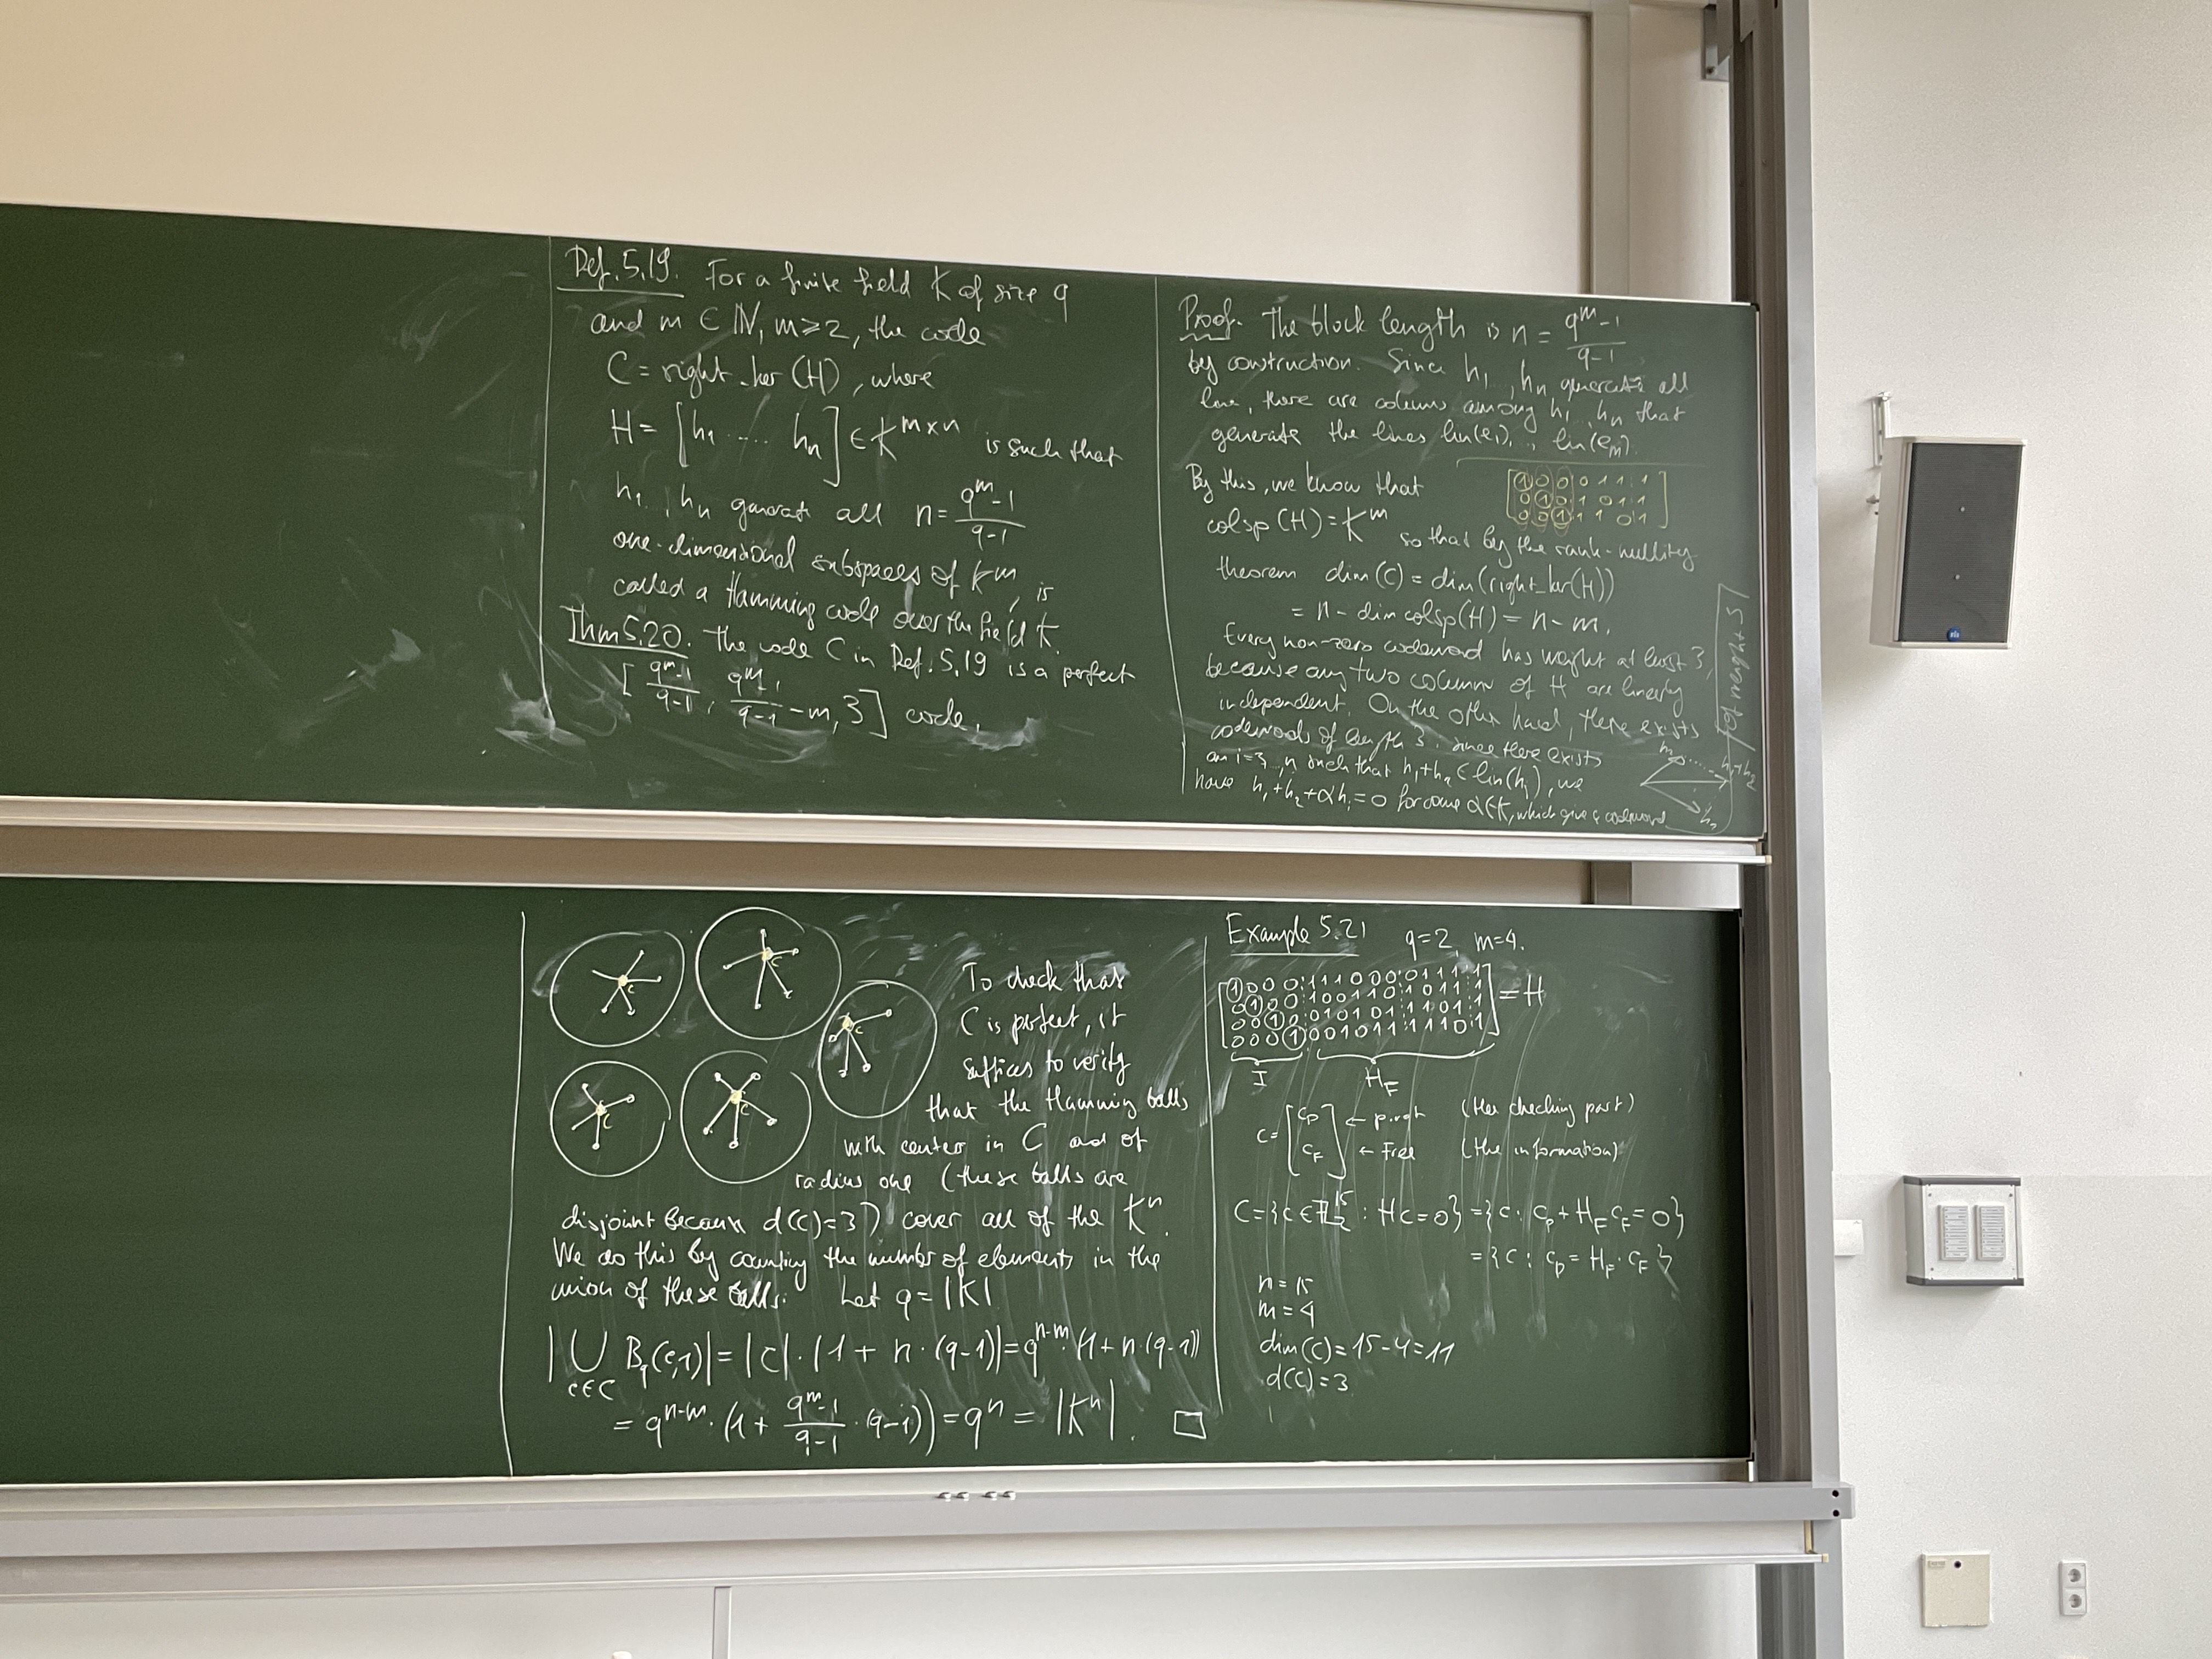 Def. 5.19. For a finite field K of size q
and m ∈ ℕ, m ≥ 2, the code
C = right_ker (H), where
H = [h₁ .... hₙ] ∈ K^{m×n} is such that
h₁ .. , hₙ generate all n = (q^m-1)/(q-1)
one-dimensional subspaces of K^m, is
called a Hamming code over the field K.
Thm 5.20. The code C in Def. 5.19 is a perfect
[(q^m-1)/(q-1), (q^m-1)/(q-1) - m, 3] code.
Proof. The block length is n = (q^m-1)/(q-1)
by construction. Since h₁ .., hₙ generate all
line, there are colums among h₁ .. hₙ that
generate the lines lin(e₁), .., lin(eₘ).
By this, we know that
[1 0 0 0 1 1 1
0 1 0 1 0 1 1
0 0 1 1 1 0 1]
colsp (H) = K^m so that by the rank-nullity
theorem dim(C) = dim(right_ker(H))
= n - dim colsp(H) = n - m.
Every non-zero codeword has weight at least 3,
because any two column of H are linearly
independent. On the other hand, there exists
codewords of length 3. since there exists
an i=3...n such that h₁+h₂ ∈ lin(hᵢ), we
have h₁+h₂+αhᵢ=0 for some α∈K, which give a codeword
of weight 3
h₂
h₁+h₂
h₁
c
c
c
c
c
To check that
C is perfect, it
suffices to verify
that the Hamming balls
with center in C and of
radius one (these balls are
disjoint because d(C)=3) cover all of the K^n.
We do this by counting the number of elements in the
union of these balls. Let q = |K|
|⋃_{c∈C} B_q(c,1)| = |C|·(1 + n·(q-1)) = q^{n-m}·(1+n·(q-1))
= q^{n-m}·(1 + (q^m-1)/(q-1)·(q-1)) = q^n = |K^n|. □
Example 5.21 q=2, m=4.
[1 0 0 0 1 1 1 0 0 0 0 1 1 1 1
0 1 0 0 1 0 0 1 1 0 1 0 1 1 1
0 0 1 0 0 1 0 1 0 1 1 1 0 1 1
0 0 0 1 0 0 1 0 1 1 1 1 1 0 1] = H
I H_F
c = [c_P ← pivot (the checking part)
c_F] ← Free (the information)
C = {c ∈ ℤ₂^15 : Hc=0} = {c : c_P + H_F c_F = 0}
= {c : c_P = H_F · c_F}
n = 15
m = 4
dim(C) = 15-4 = 11
d(C) = 3